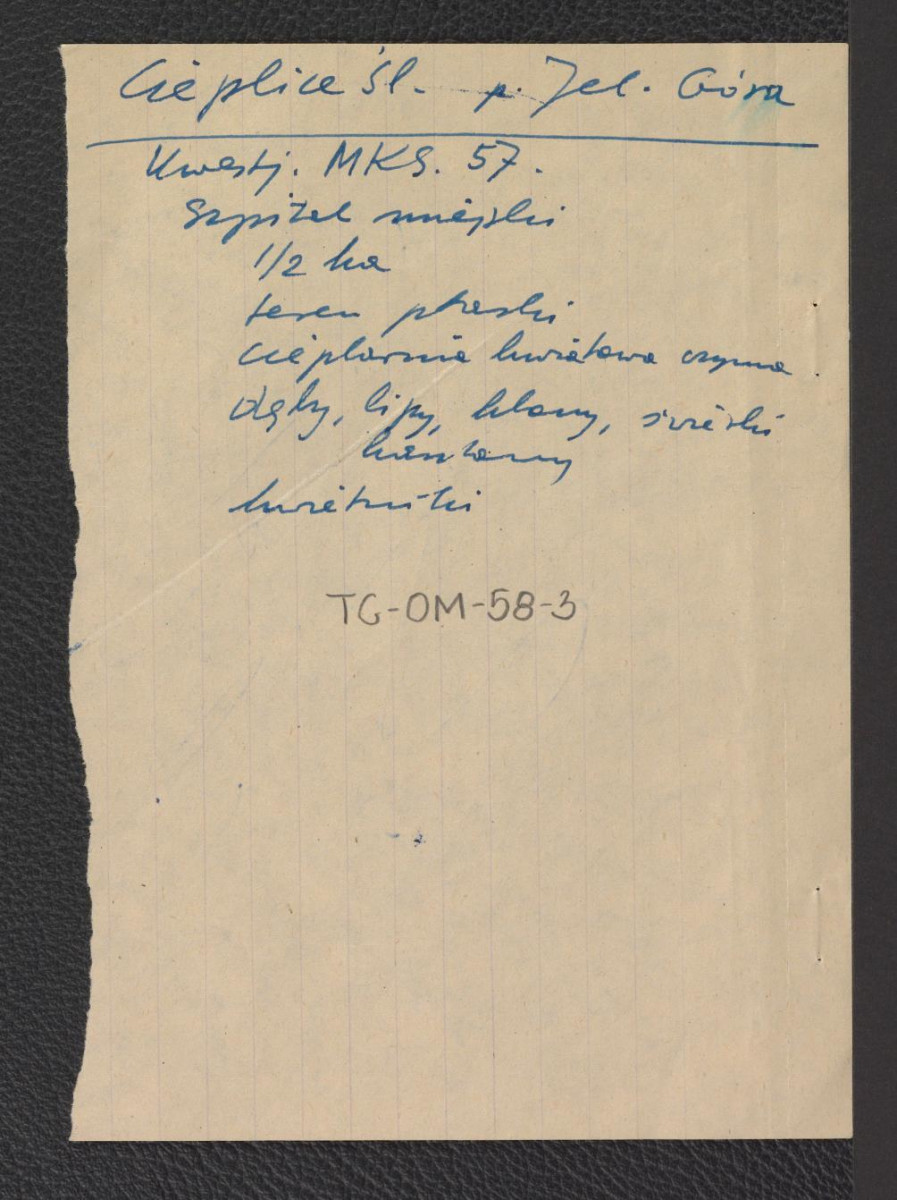 Cieplice Śl. p. Jel. Góra
Kwestj. MKS. 57.
Szpital miejski
1/2 ha
teren płaski
cieplarnia kwiatowa czynna
dęby, lipy, klony, świerki
kasztany
kwietniki
TG-OM-58-3